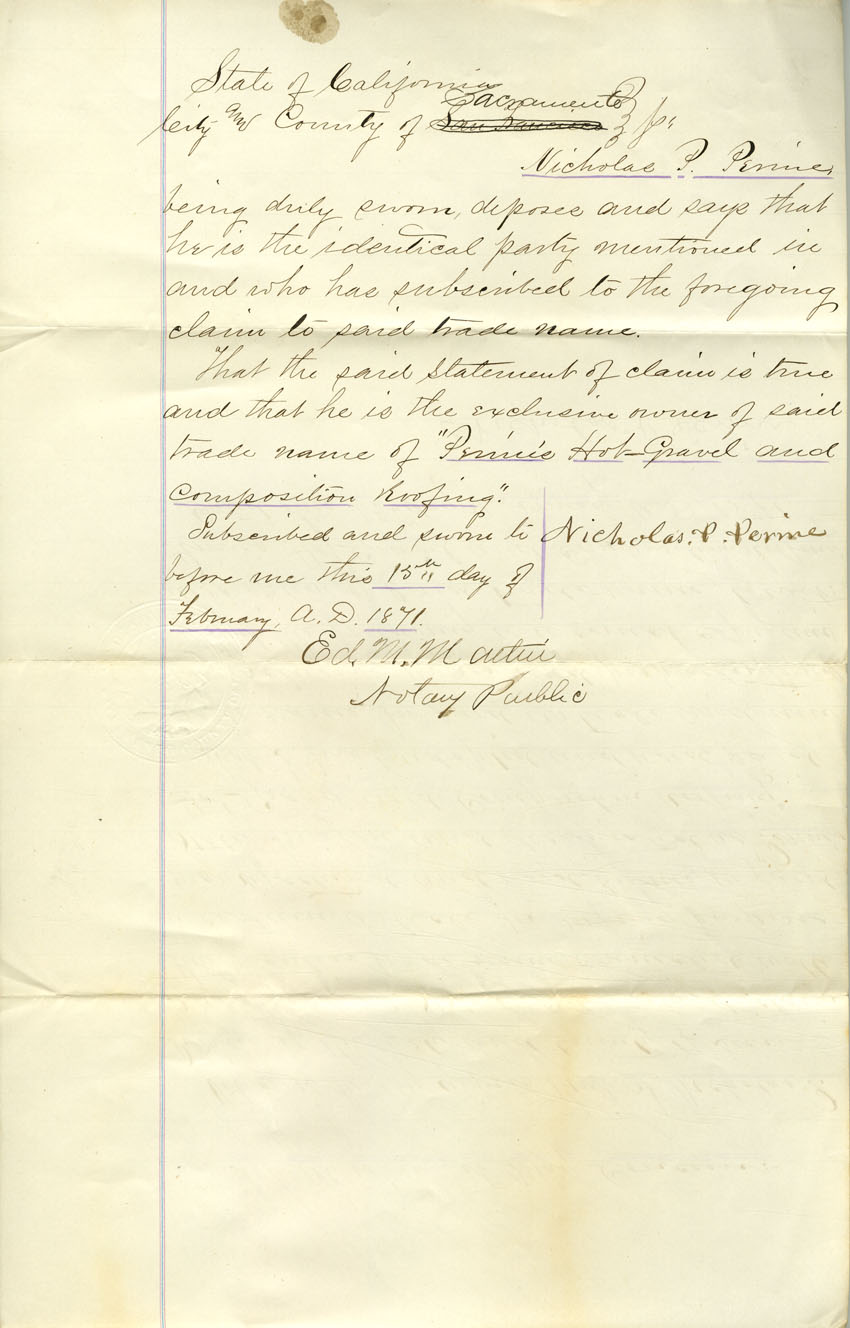 State of California
Sacramento
City and County of San Francisco } ss
Nicholas P. Perine,
being duly sworn, deposes and says that
he is the identical party mentioned in
and who has subscribed to the foregoing
claim to said trade name.
That the said statement of claim is true
and that he is the exclusive owner of said
trade name of "Perine's Hot-Gravel and
Composition Roofing."
Subscribed and sworn to | Nicholas. P. Perine
before me this 15th day of
February, A.D. 1871.
Ed. M. Martin
Notary Public